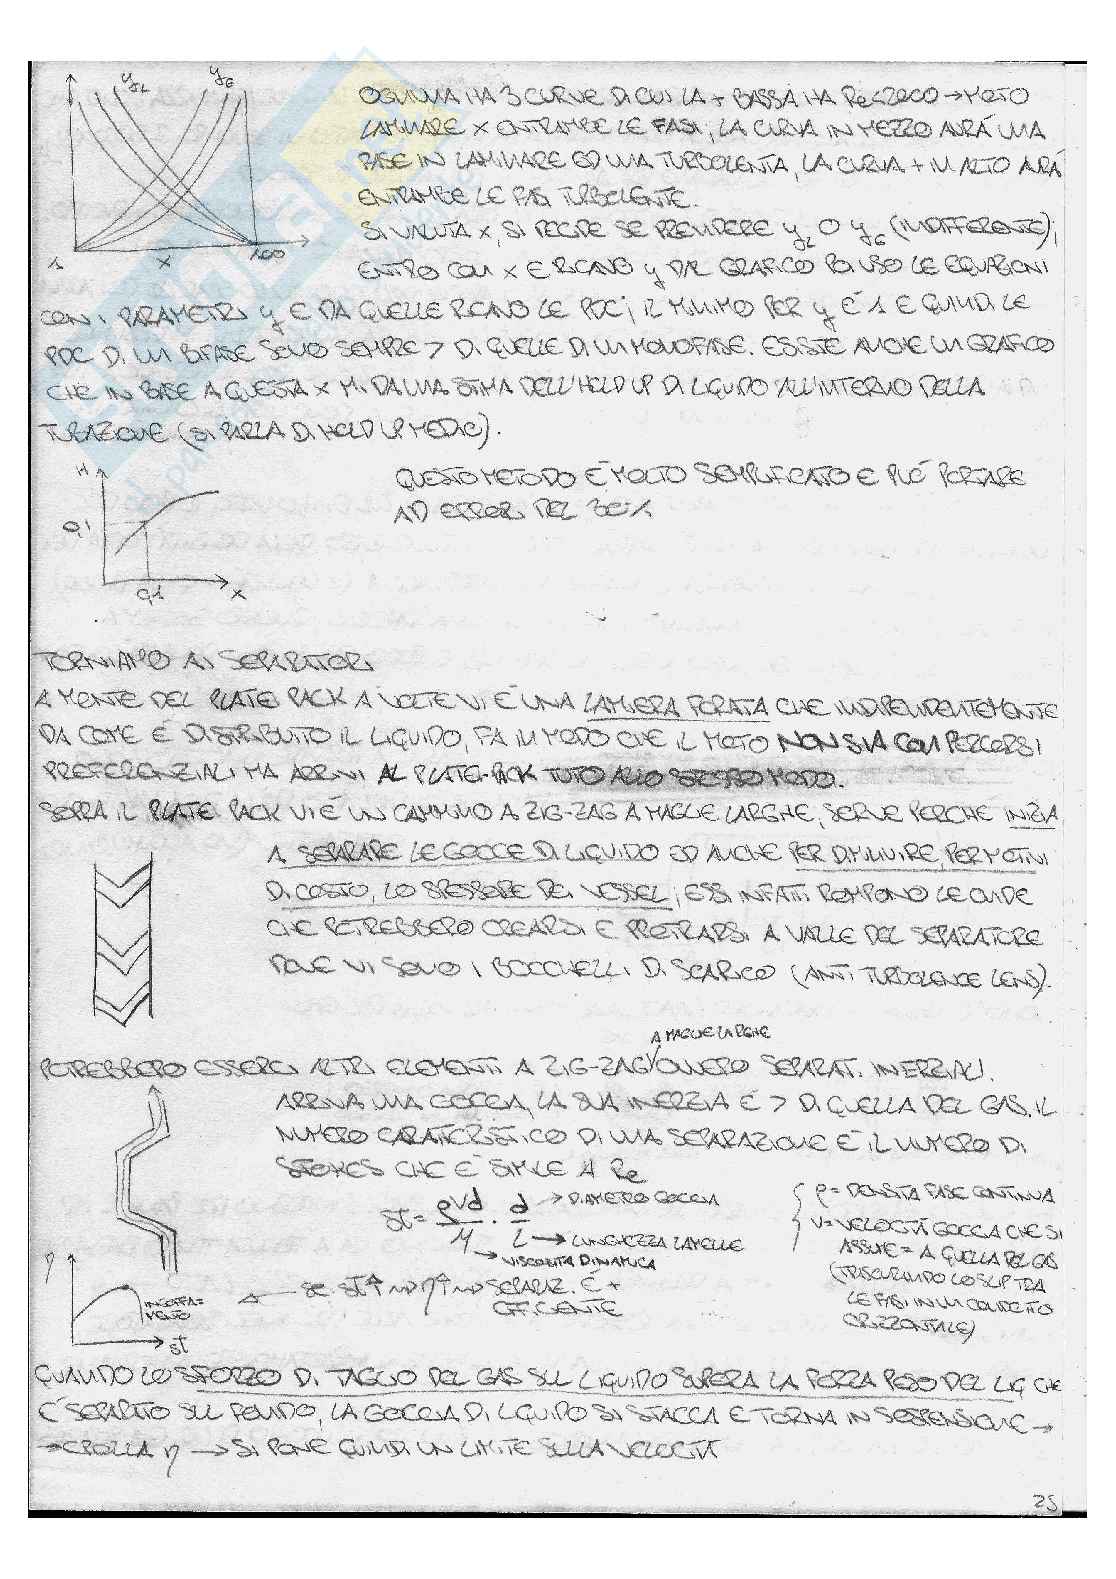 yL yG
OGNUNA HA 3 CURVE DI CUI LA + BASSA HA Re<2000 → MOTO
LAMINARE X ENTRAMBE LE FASI; LA CURVA IN MEZZO AVRÁ UNA
FASE IN LAMINARE ED UNA TURBOLENTA, LA CURVA + IN ALTO AVRÁ
ENTRAMBE LE FASI TURBOLENTE.
SI VALUTA X, SI DECIDE SE PRENDERE yL O yG (INDIFFERENTE);
1 X 100
ENTRO CON X E RICAVO y DAL GRAFICO POI USO LE EQUAZIONI
CON I PARAMETRI y E DA QUELLE RICAVO LE PDC; IL MINIMO PER y É 1 E QUINDI LE
PDC DI UN BIFASE SONO SEMPRE > DI QUELLE DI UN MONOFASE. ESISTE ANCHE UN GRAFICO
CHE IN BASE A QUESTA X MI DA UNA STIMA DELL'HOLD UP DI LIQUIDO ALL'INTERNO DELLA
TUBAZIONE (SI PARLA DI HOLD UP MEDIO).
H
QUESTO METODO É MOLTO SEMPLIFICATO E PUÓ PORTARE
AD ERRORI DEL 30%
0,1
0,1 X
TORNIAMO AI SEPARATORI
A MONTE DEL PLATE PACK A VOLTE VI É UNA LAMIERA FORATA CHE INDIPENDENTEMENTE
DA COME É DISTRIBUITO IL LIQUIDO, FA IN MODO CHE IL MOTO NON SIA CON PERCORSI
PREFERENZIALI MA ARRIVI AL PLATE-PACK TUTTO ALLO STESSO MODO.
SOPRA IL PLATE PACK VI É UN CAMMINO A ZIG-ZAG A MAGLIE LARGHE, SERVE PERCHE INIZIA
A SEPARARE LE GOCCE DI LIQUIDO ED ANCHE PER DIMINUIRE, PER MOTIVI
DI COSTO, LO SPESSORE DEI VESSEL; ESSI INFATTI ROMPONO LE ONDE
CHE POTREBBERO CREARSI E PROTRARSI A VALLE DEL SEPARATORE
DOVE VI SONO I BOCCHELLI DI SCARICO (ANTI TURBOLENCE LENS).
A MAGLIE LARGHE
POTREBBERO ESSERCI ALTRI ELEMENTI A ZIG-ZAG OVVERO SEPARAT. INERZIALI.
ARRIVA UNA GOCCIA, LA SUA INERZIA É > DI QUELLA DEL GAS. IL
NUMERO CARATTERISTICO DI UNA SEPARAZIONE É IL NUMERO DI
STOKES CHE É SIMILE A Re
St = ρVd/μ · d/L
→ DIAMETRO GOCCIA
→ LUNGHEZZA LAMELLE
→ VISCOSITÁ DINAMICA
ρ = DENSITÁ FASE CONTINUA
V = VELOCITÁ GOCCIA CHE SI
ASSUME = A QUELLA DEL GAS
(TRASCURANDO LO SLIP TRA
LE FASI IN UN CONDOTTO
ORIZZONTALE)
η
INGOLFA=
MENTO
St
← SE St↑ → η↑ → SEPARAZ. É +
EFFICIENTE
QUANDO LO SFORZO DI TAGLIO DEL GAS SUL LIQUIDO SUPERA LA FORZA PESO DEL LIQ CHE
C'É SEPARATO SUL FONDO, LA GOCCIA DI LIQUIDO SI STACCA E TORNA IN SOSPENSIONE →
→ CROLLA η → SI PONE QUINDI UN LIMITE SULLA VELOCITÁ
25